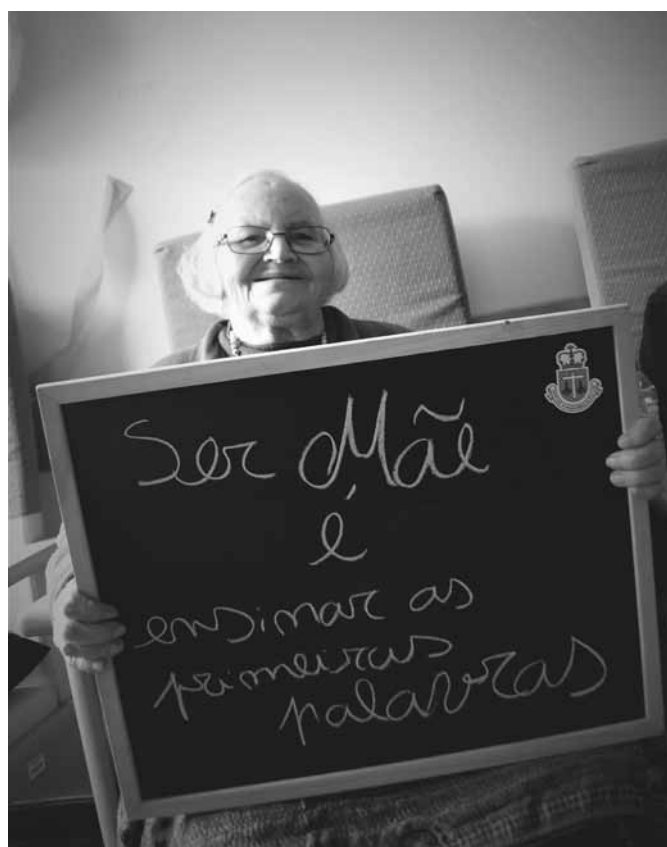 Ser Mãe
é
ensinar as
primeiras
palavras